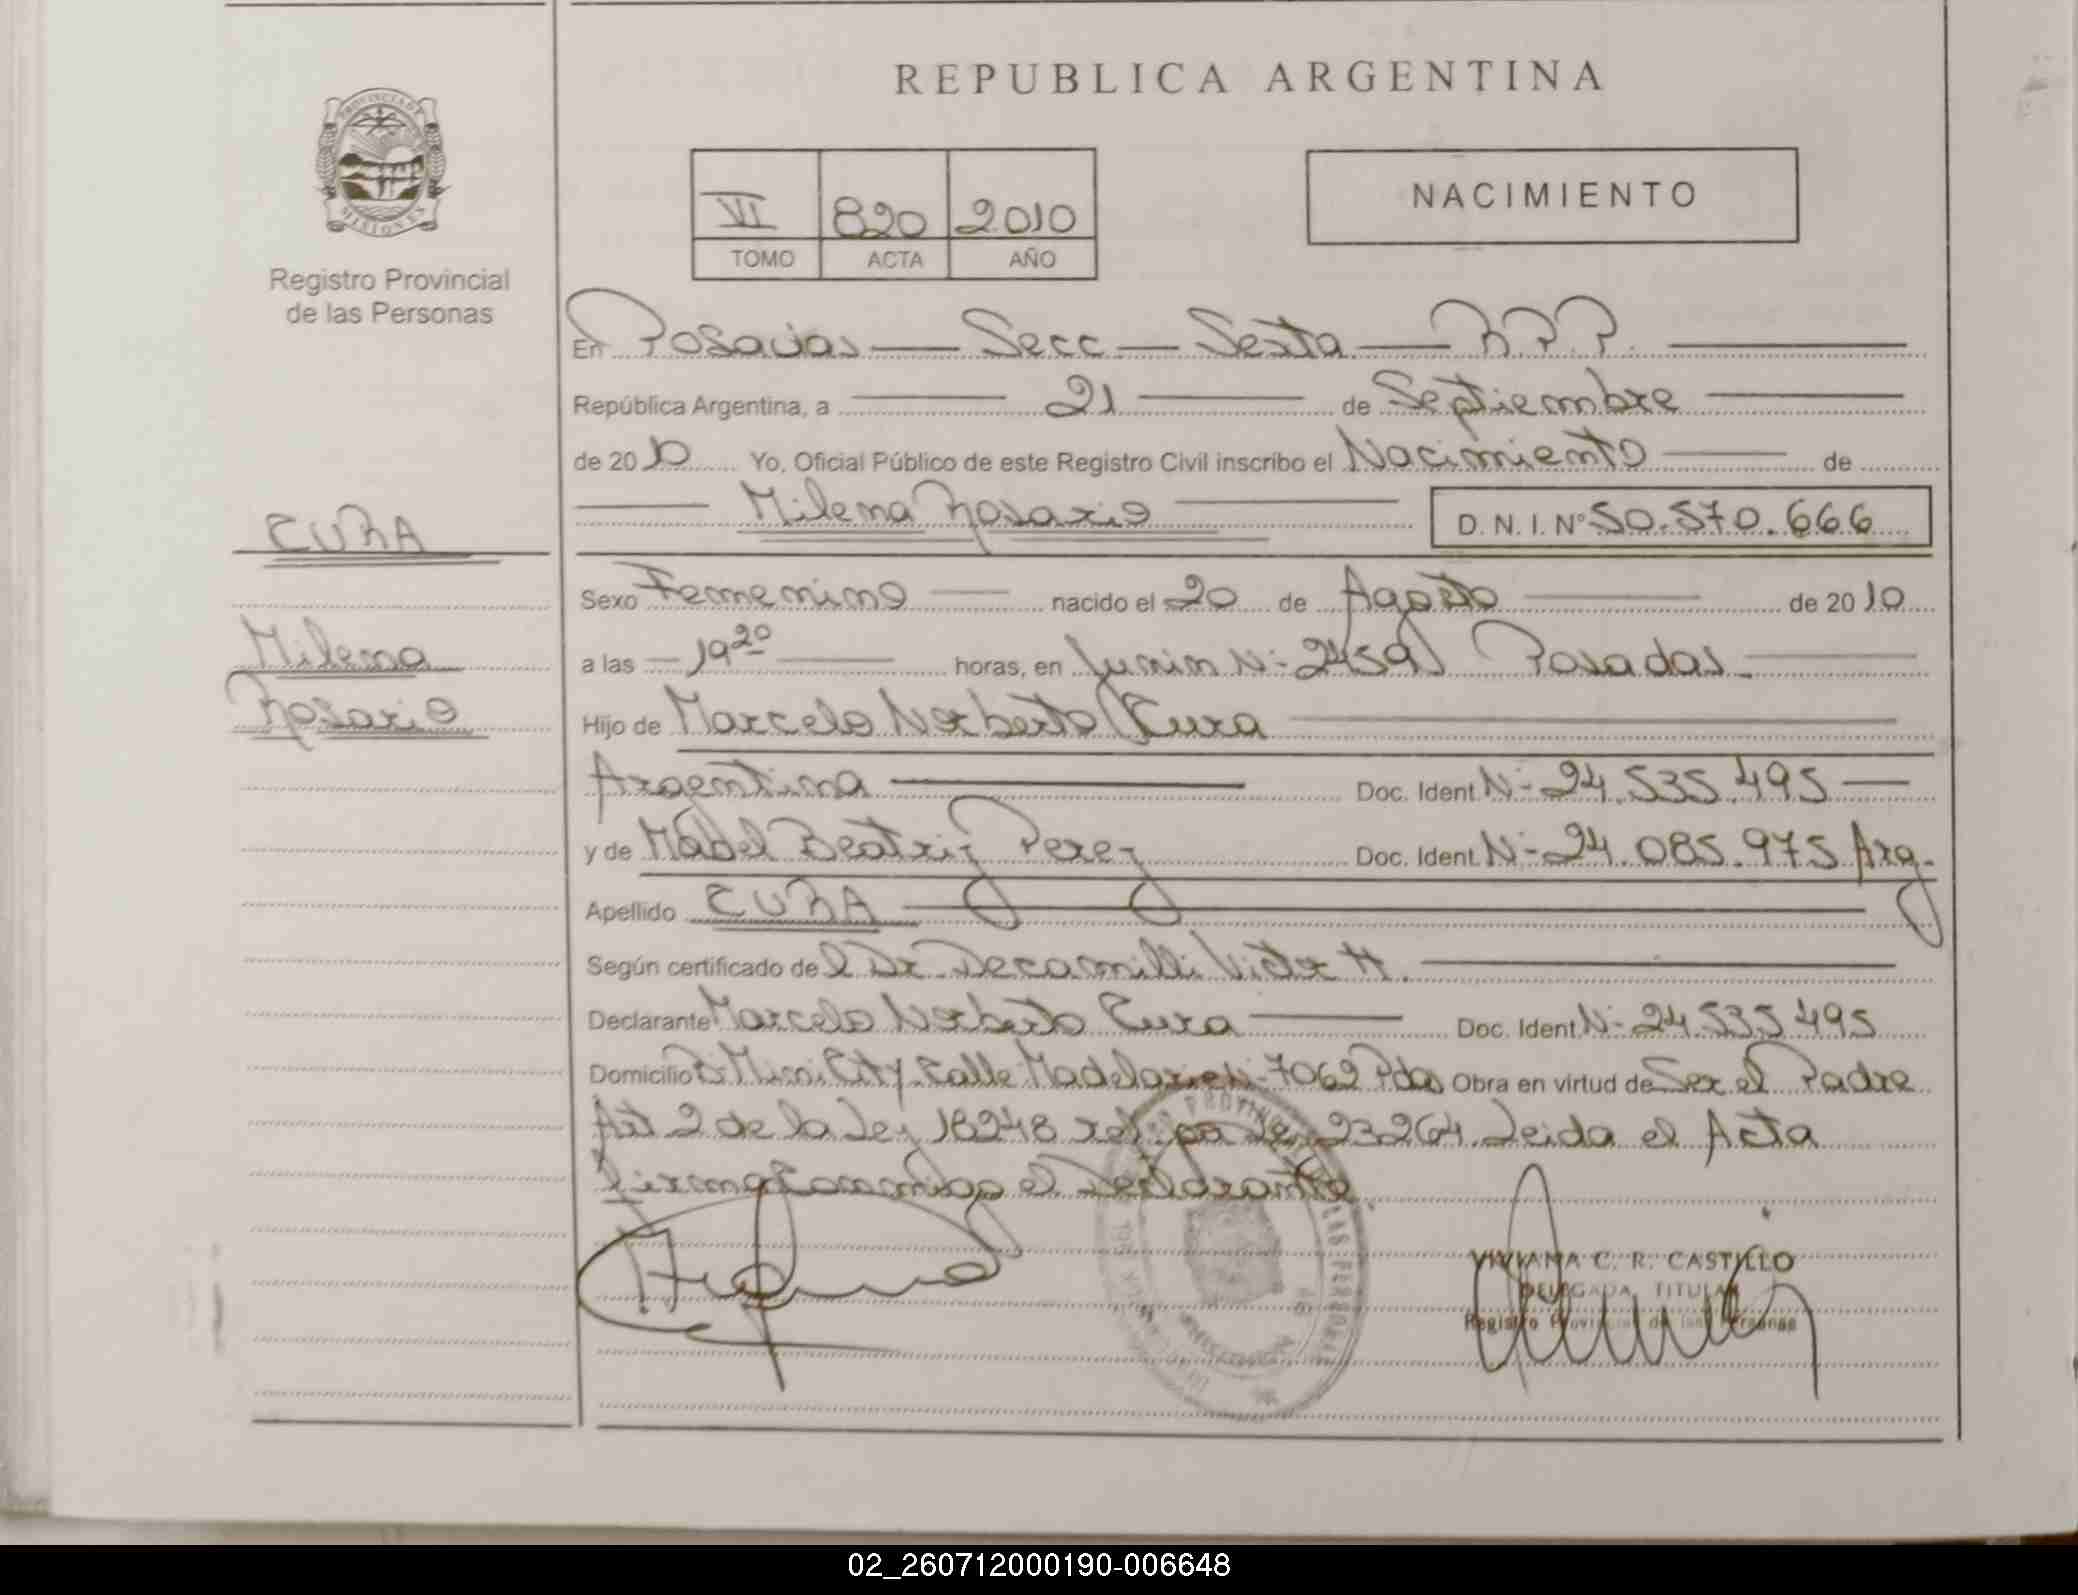 REPUBLICA ARGENTINA
PROVINCIA DE
MISIONES
Registro Provincial
de las Personas
VI 820 2010
TOMO ACTA AÑO
NACIMIENTO
En Posadas — Secc — Sexta — R.P.P.
República Argentina, a 21 de Septiembre
de 2010 Yo, Oficial Público de este Registro Civil inscribo el Nacimiento de
Milena Rosario D.N.I. Nº 50.570.666
CURA
Milena
Rosario
Sexo Femenino nacido el 20 de Agosto de 2010
a las 19 20 horas, en Junin Nº 2459 Posadas
Hijo de Marcelo Norberto Cura
Argentina Doc. Ident. Nº 24.535.495
y de Mabel Beatriz Perez Doc. Ident. Nº 24.085.975 Arg.
Apellido CURA
Según certificado del Dr. Decamilli Victor H.
Declarante Marcelo Norberto Cura Doc. Ident. Nº 24.535.495
Domicilio Mini City calle 7062 Pdas Obra en virtud de Ser el Padre
Art 2 de la Ley 18248 ref. por Ley 23264. Leida el Acta
el Declarante
VIVIANA C. R. CASTILLO
DELEGADA TITULAR
Registro Provincial de las Personas
02_260712000190-006648